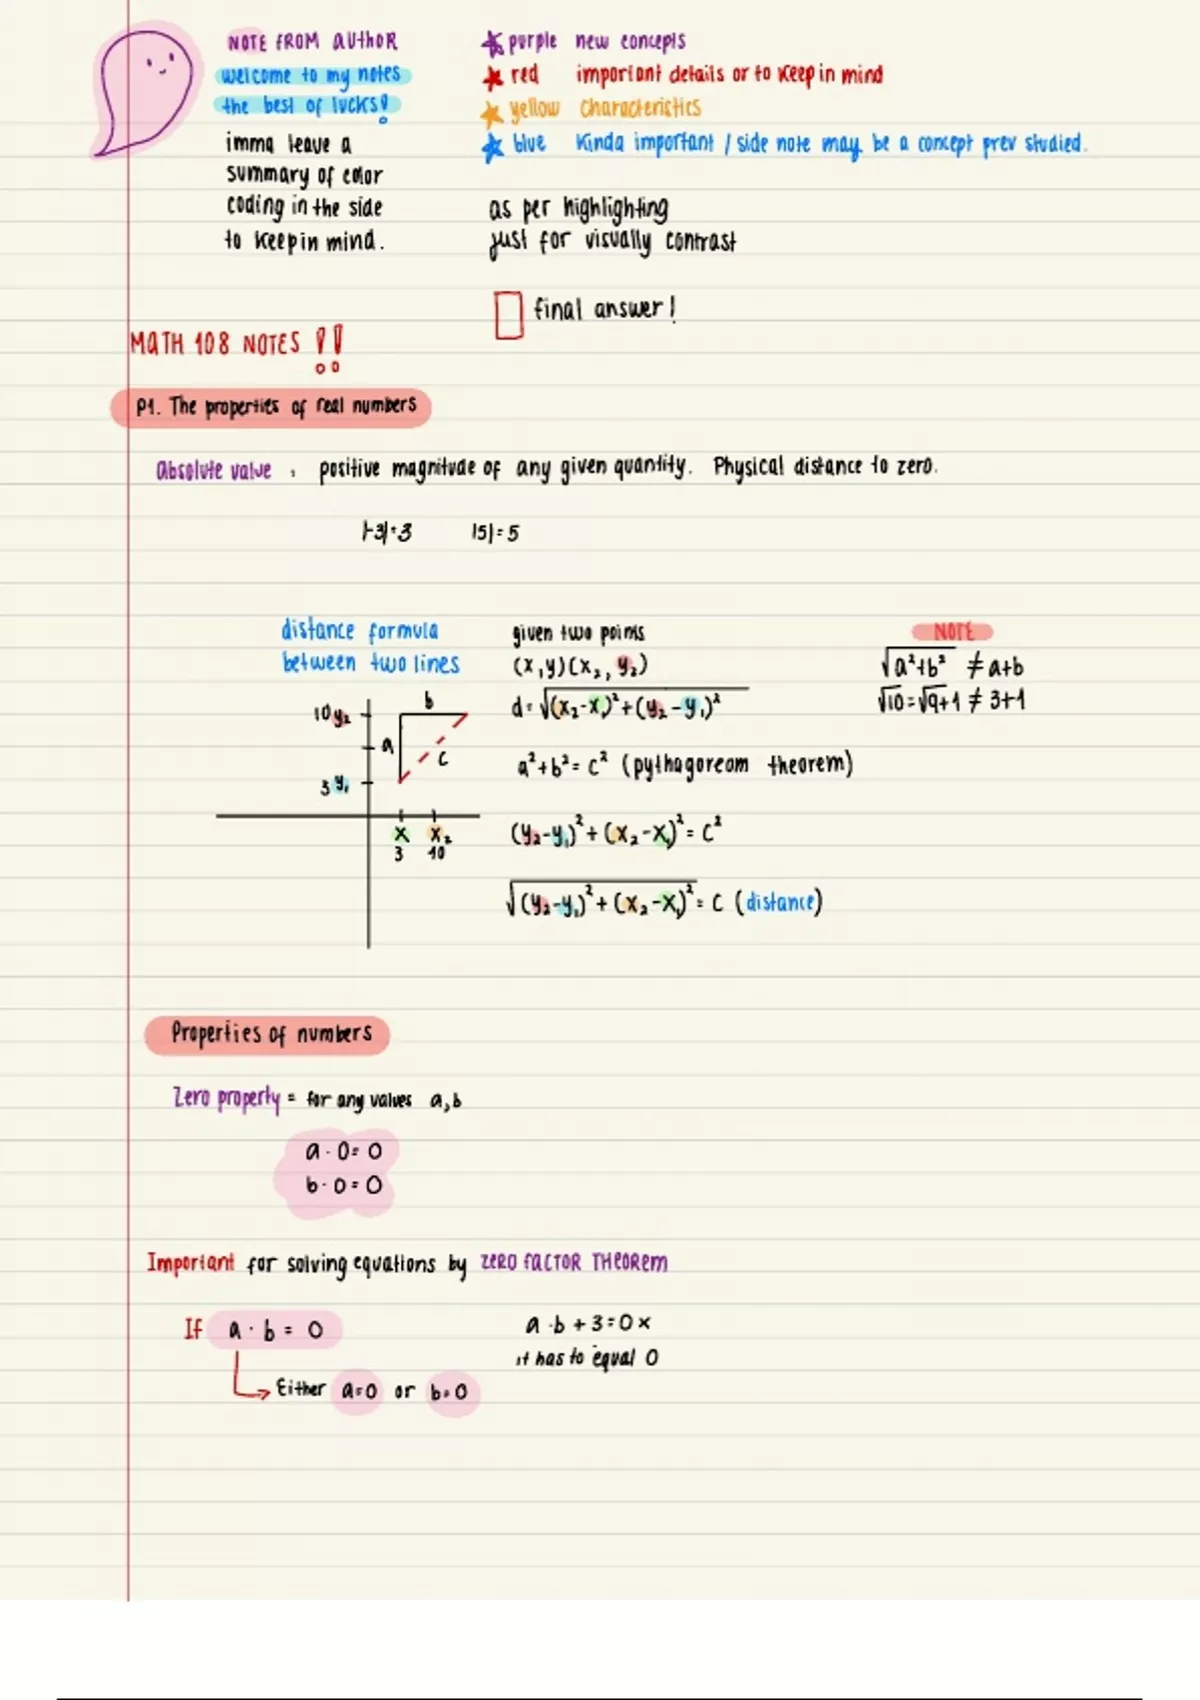 NOTE FROM AUTHOR
welcome to my notes
the best of lucks!
imma leave a
summary of color
coding in the side
to keep in mind.
purple new concepts
red important details or to keep in mind
yellow characteristics
blue kinda important / side note may be a concept prev studied.
as per highlighting
just for visually contrast
final answer!
MATH 108 NOTES !!
P1. The properties of real numbers
Absolute value : positive magnitude of any given quantity. Physical distance to zero.
|-3|=3 |5|=5
distance formula
between two lines
10 y₂
3 y₁
a
b
c
x x₂
3 10
given two points
(x,y)(x₂, y₂)
d=√(x₂-x₁)²+(y₂-y₁)²
a²+b²=c² (pythagoream theorem)
(y₂-y₁)²+(x₂-x₁)²=c²
√(y₂-y₁)²+(x₂-x₁)²=c (distance)
NOTE
√a²+b² ≠ a+b
√10=√9+1 ≠ 3+1
Properties of numbers
Zero property = for any values a,b
a·0=0
b·0=0
Important for solving equations by ZERO FACTOR THEOREM
If a·b=0
Either a=0 or b=0
a·b+3=0 x
it has to equal 0